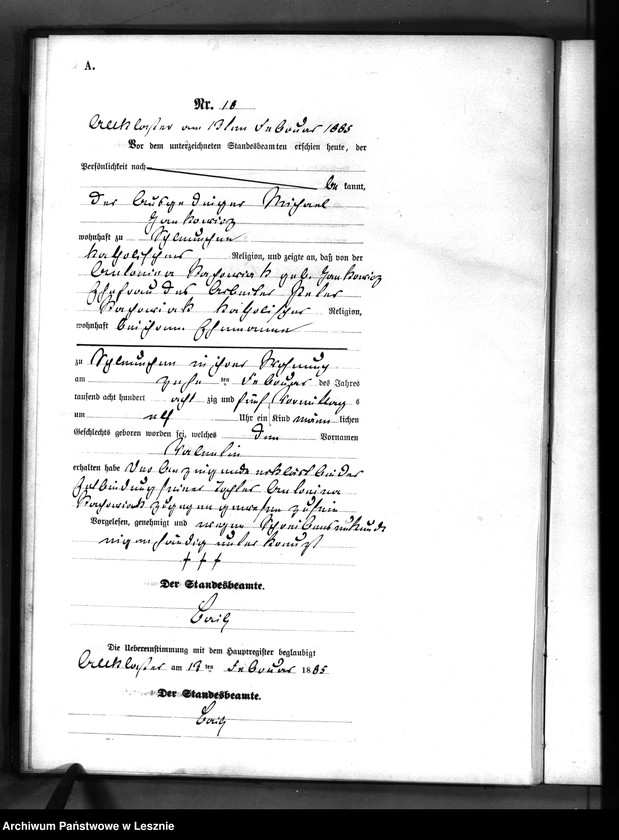 A.
Nr. 10
Altkloster am 13ten Februar 1885
Vor dem unterzeichneten Standesbeamten erschien heute, der
Persönlichkeit nach
be kannt,
der Ausgedinger Michael
Jankowicz
wohnhaft zu Schleunchen
katholischer Religion, und zeigte an, daß von der
Antonina geb. Jankowicz
Ehefrau des Arbeiter Peter
katholischer Religion,
wohnhaft bei ihrem Ehemanne
zu Schleunchen in ihrer Wohnung
am ten Februar des Jahres
tausend acht hundert acht zig und fünf Vormittag s
um elf Uhr ein Kind männ lichen
Geschlechts geboren worden sei, welches den Vornamen
Valentin
erhalten habe Der Anzeigende erklärt bei der
Entbindung seiner Tochter Antonina
zugegen gewesen zu sein
Vorgelesen, genehmigt und wegen Schreibensunkunde
eigenhändig unterkreuzt
+ + +
Der Standesbeamte.
Die Uebereinstimmung mit dem Hauptregister beglaubigt
Altkloster am 13ten Februar 1885
Der Standesbeamte.
Archiwum Państwowe w Lesznie